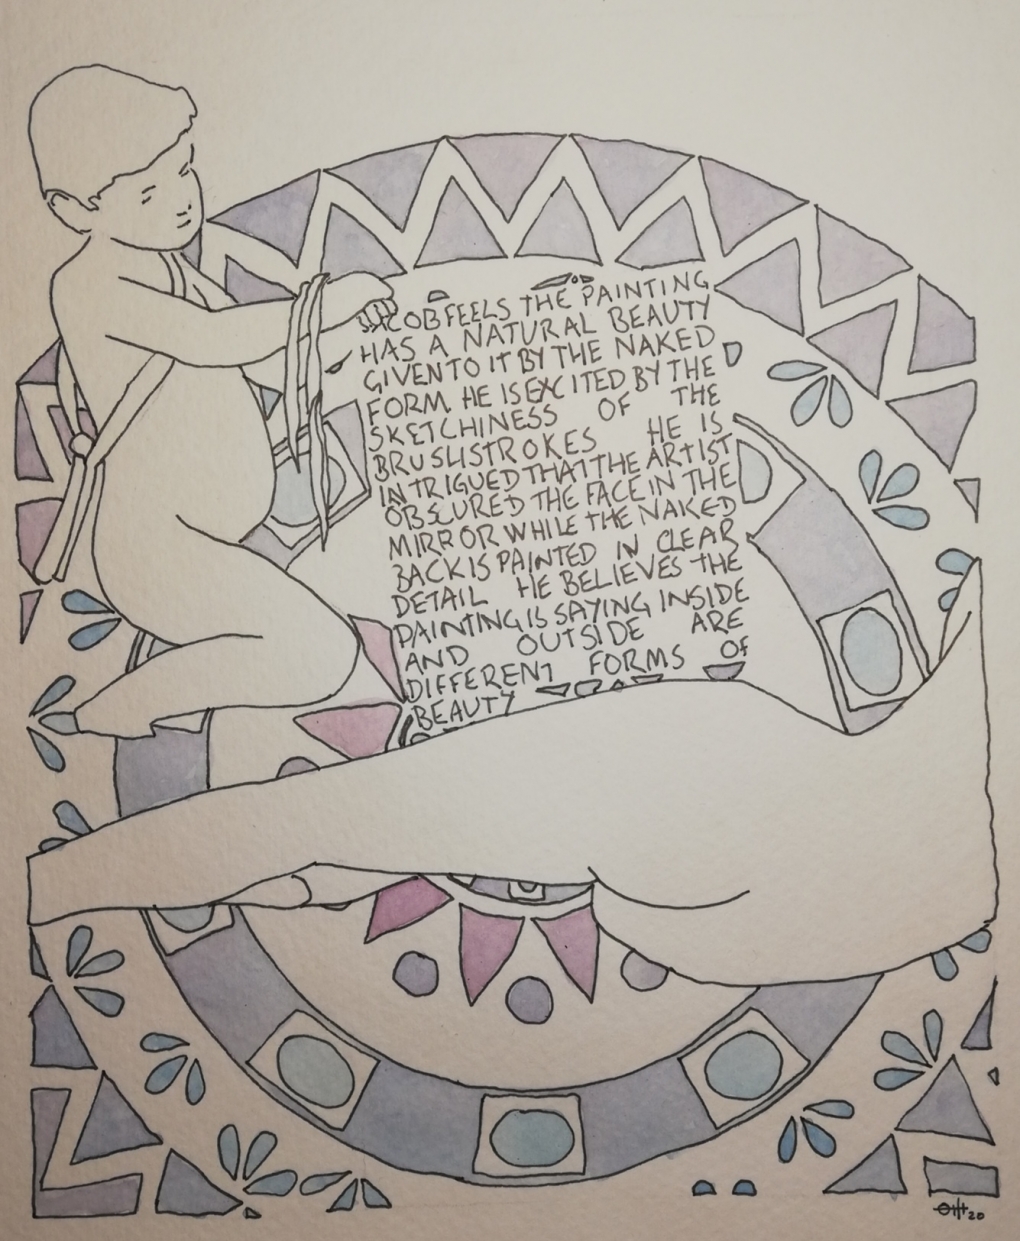 JACOB FEELS THE PAINTING
HAS A NATURAL BEAUTY
GIVEN TO IT BY THE NAKED
FORM. HE IS EXCITED BY THE
SKETCHINESS OF THE
BRUSHSTROKES HE IS
INTRIGUED THAT THE ARTIST
OBSCURED THE FACE IN THE
MIRROR WHILE THE NAKED
BACK IS PAINTED IN CLEAR
DETAIL HE BELIEVES THE
PAINTING IS SAYING INSIDE
AND OUTSIDE ARE
DIFFERENT FORMS OF
BEAUTY